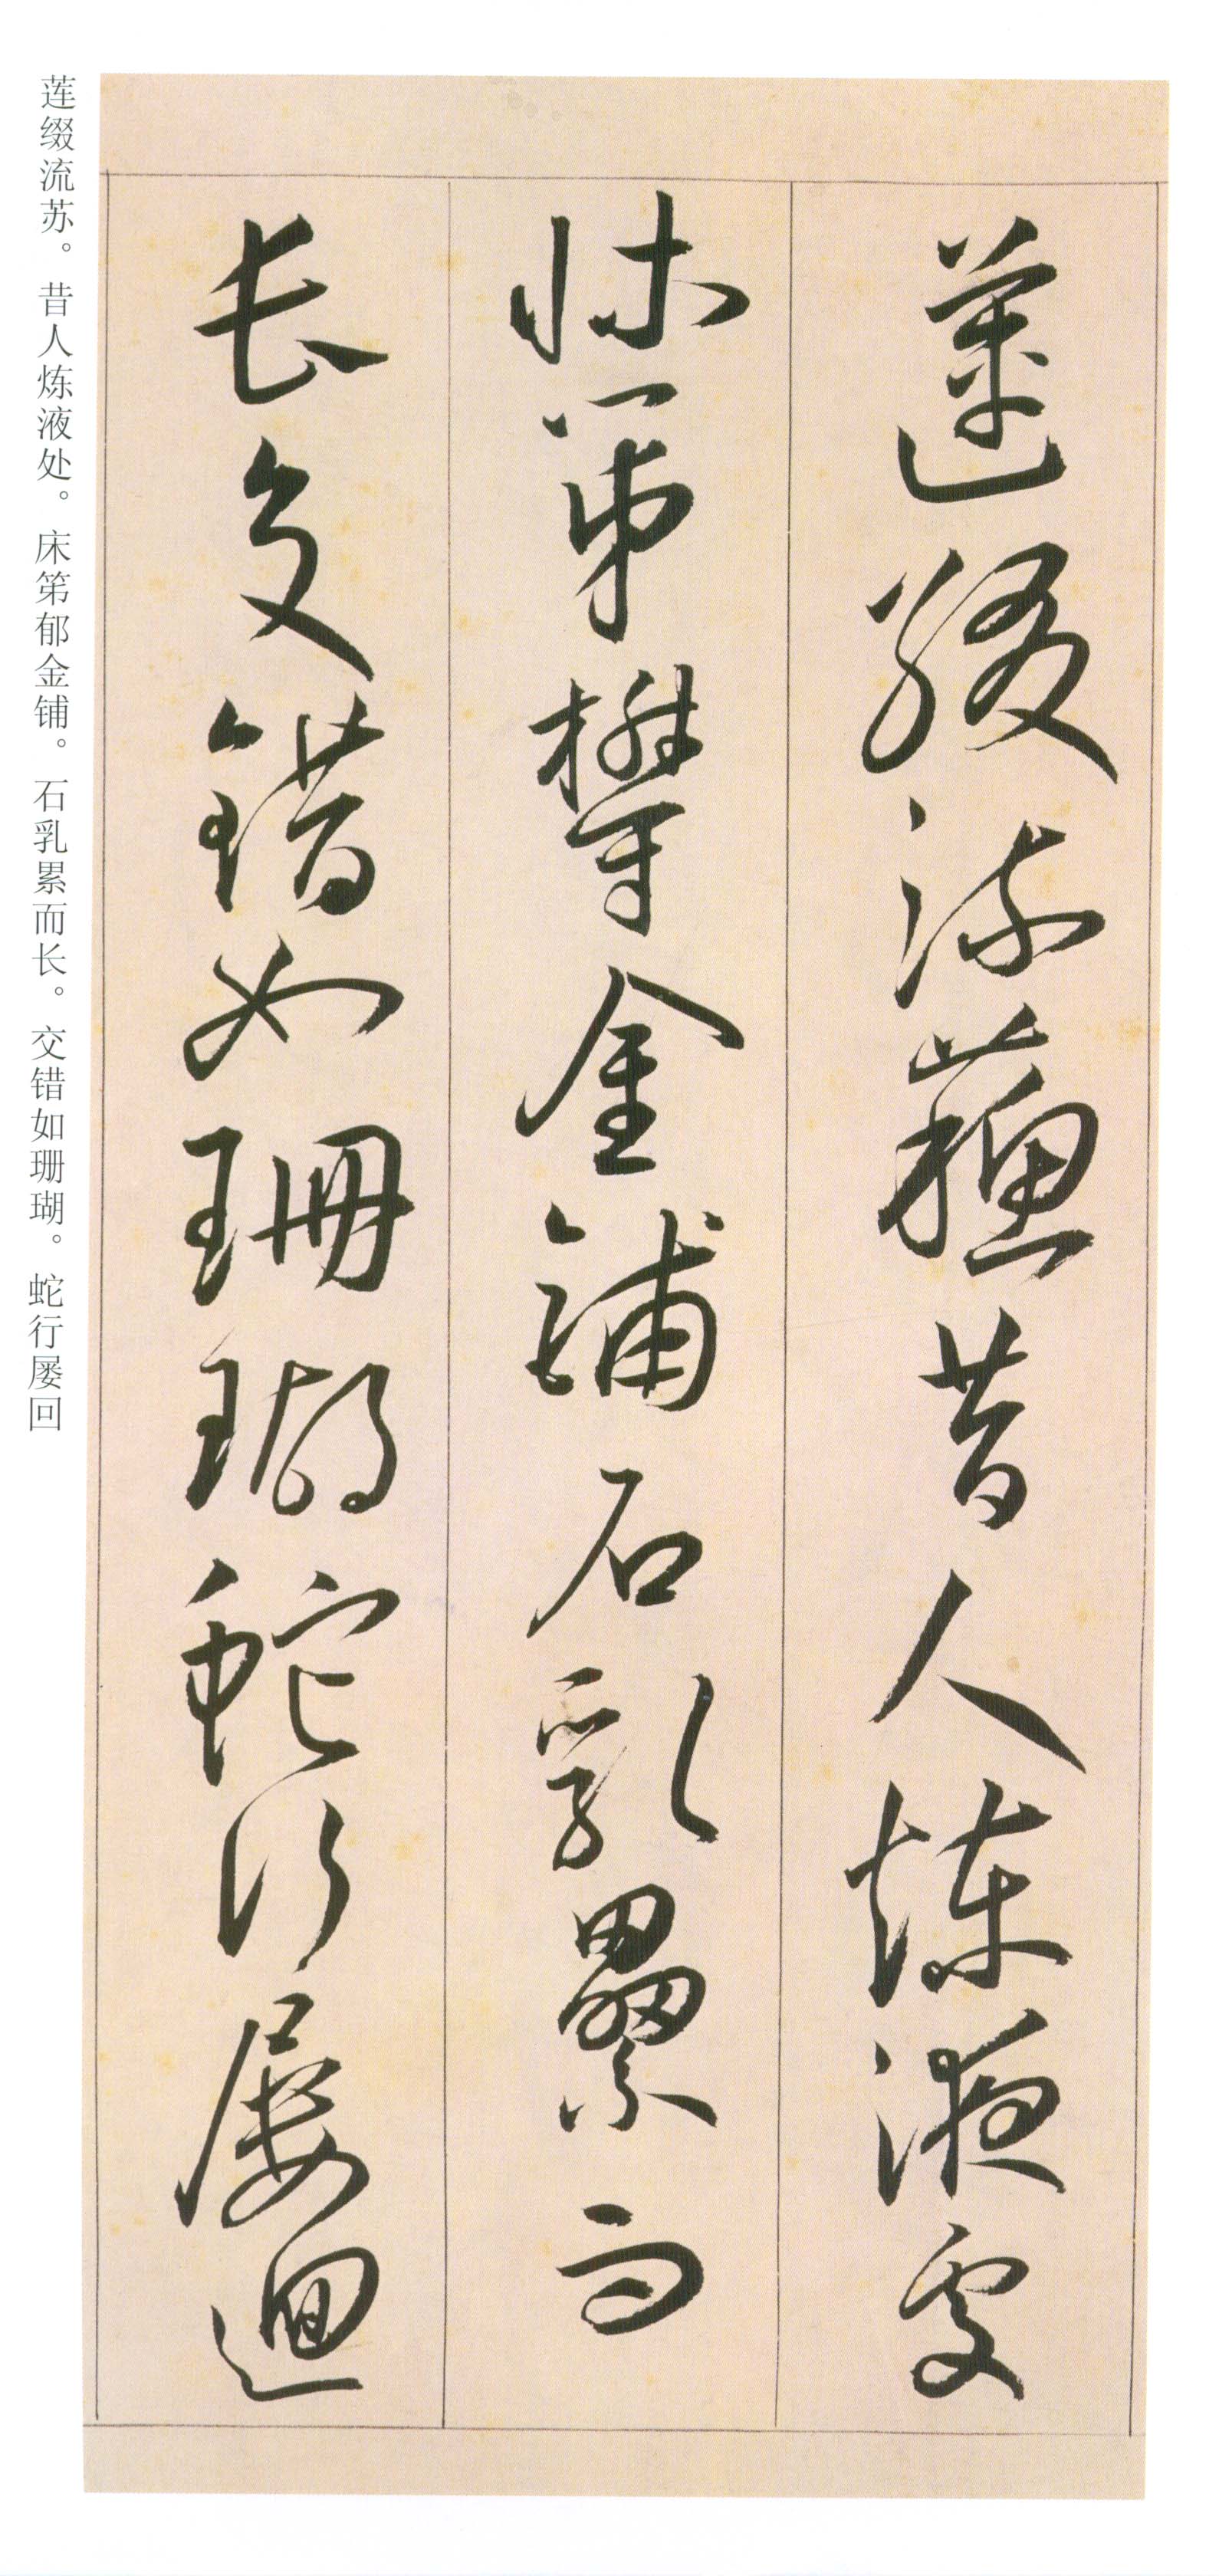 蓮綴流蘇昔人煉液處
牀笫欎金鋪石乳纍而
長交錯如珊瑚蛇行屢迴
莲缀流苏。昔人炼液处。床笫郁金铺。石乳累而长。交错如珊瑚。蛇行屡回